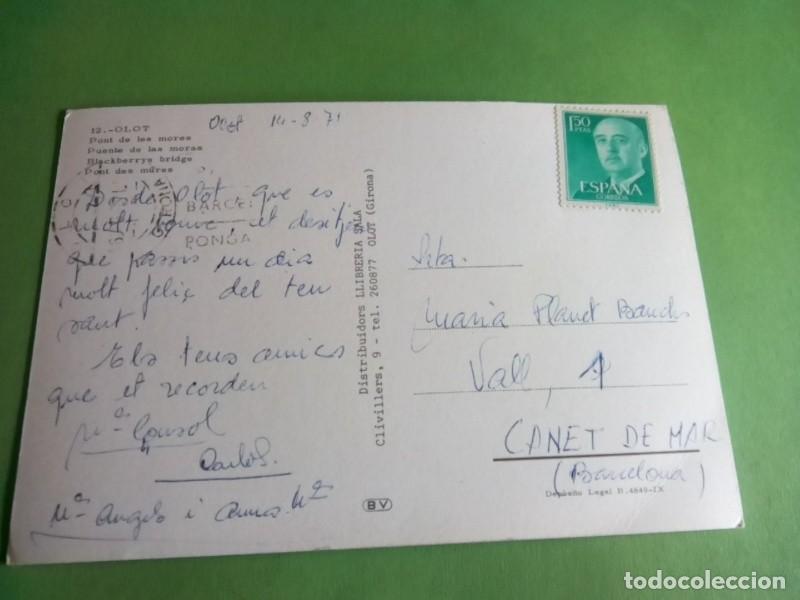 12.-OLOT
Pont de les mores
Puente de las moras
Blackberrys bridge
Pont des mûres
Olot 14-8 71
BARCEL
PONGA
Desde Olot que es
molt bonic et desitjo
que passis un dia
molt feliç del teu
sant.
Els teus amics
que et recorden
Mª Consol
Carlos.
Mª Angels i Mª
Distribuidors LLIBRERIA SALA
Clivillers, 9 - tel. 260877 OLOT (Girona)
BV
1,50
PTAS
ESPAÑA
CORREOS
Srta.
Maria Planet
Vall, 1
CANET DE MAR
(Barcelona)
Depósito Legal B.4849-IX
todocoleccion
todocoleccion.net